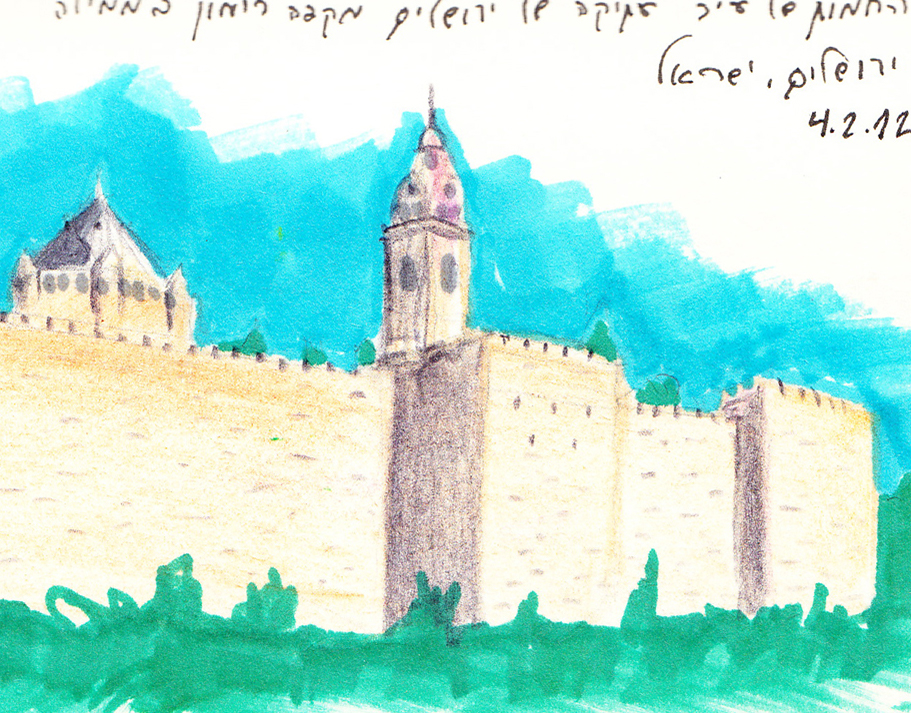 החומות של עיר עתיקה של ירושלים מקפה רימון בממילה
ירושלים, ישראל
4.2.12